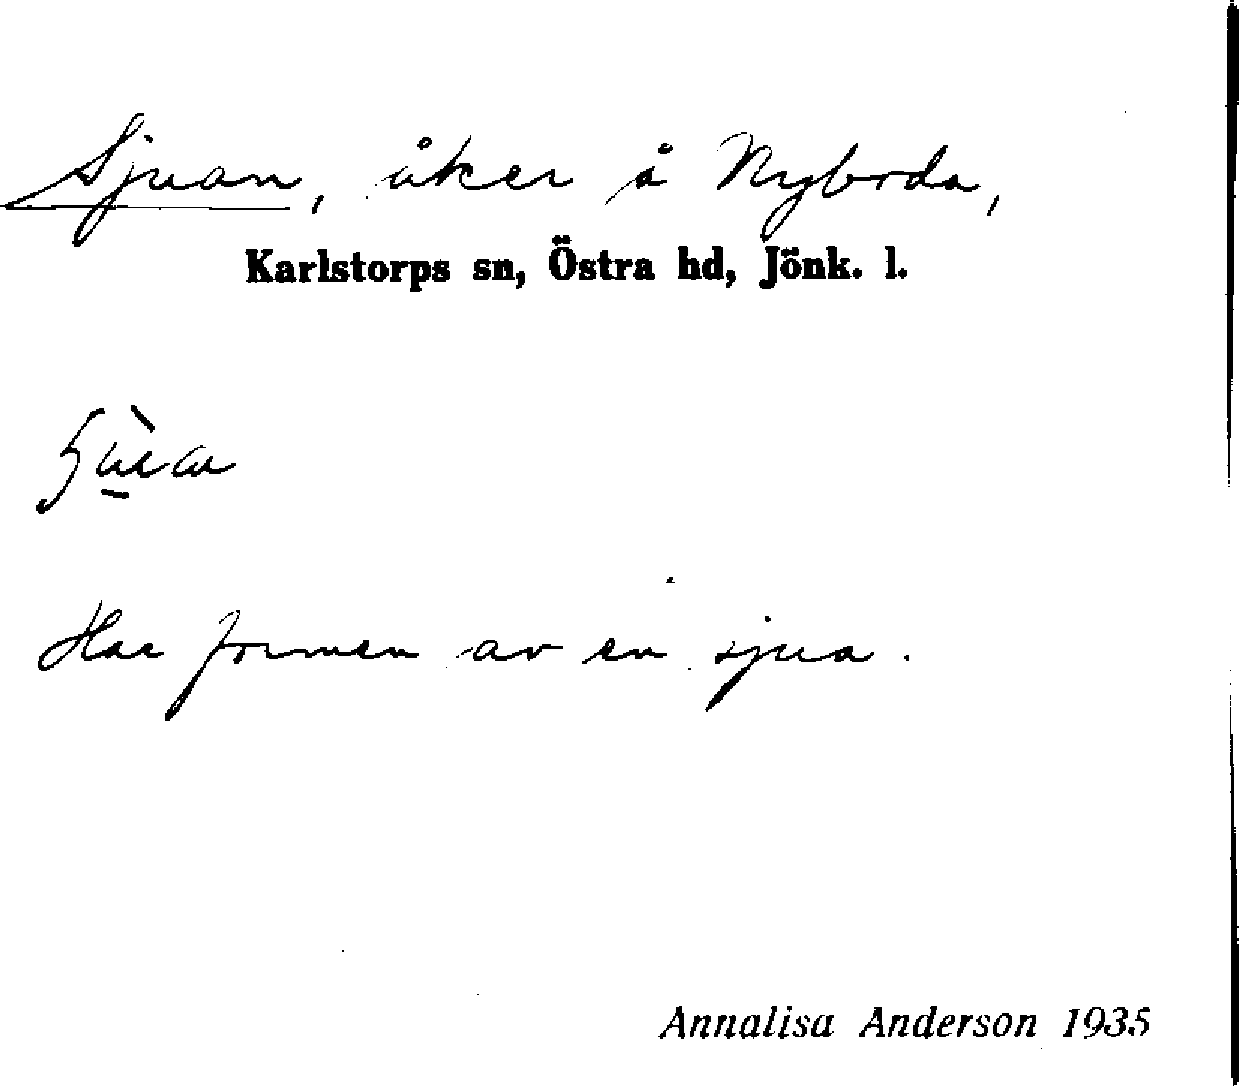 Sjuan, åker å Nyboda,
Karlstorps sn, Östra hd, Jönk. l.
Har formen av en sjua.
Annalisa Anderson 1935